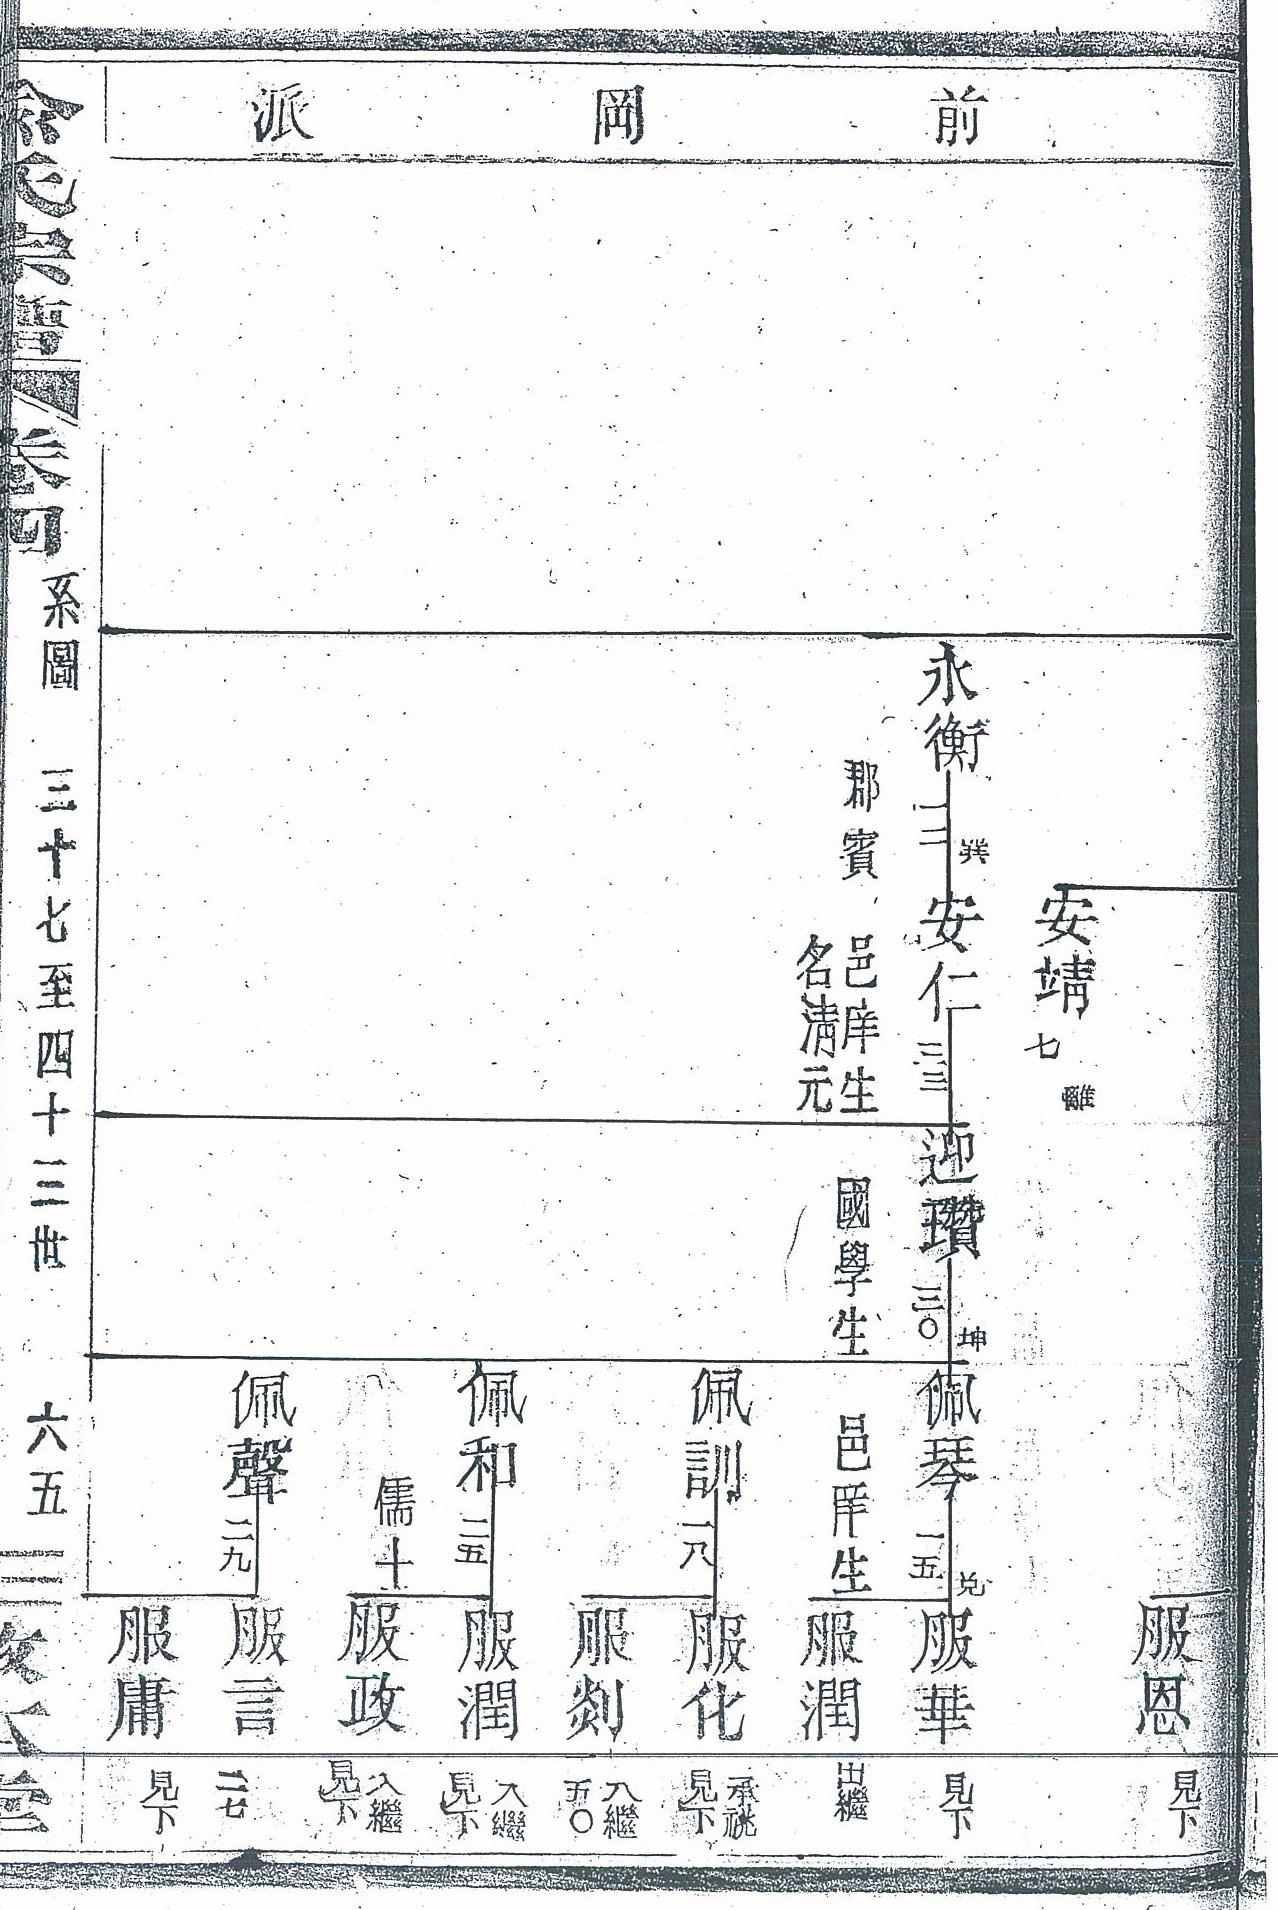 前岡派
安靖
七
離
服恩
見下
永衡
一二
巽
郡賓
安仁
三三
邑庠生
名清元
迎瓚
三〇
坤
國學生
佩琴
一五
兌
邑庠生
服華
見下
服潤
出繼
佩訓
一八
服化
承祧
見下
服剡
入繼
五〇
佩和
二五
儒士
服潤
入繼
見下
服政
入繼
見下
佩聲
二九
服言
二七
服庸
見下
宗譜
卷四
系圖 三十七至四十三世 六五